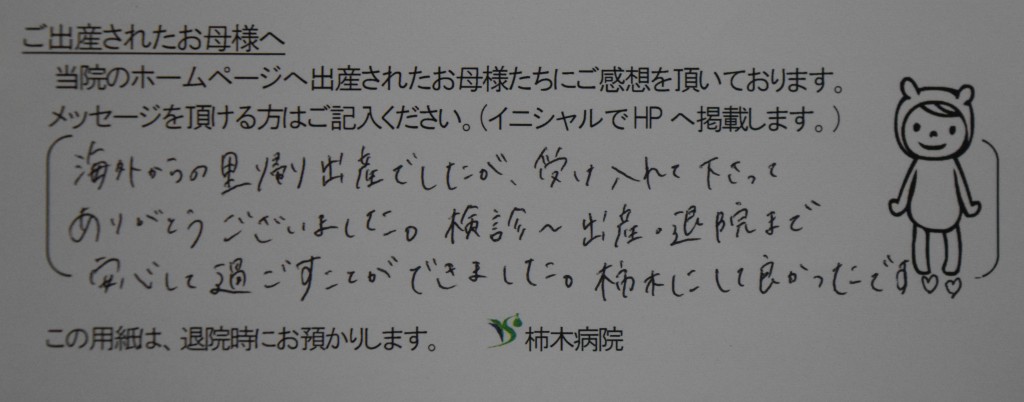 ご出産されたお母様へ
当院のホームページへ出産されたお母様たちにご感想を頂いております。
メッセージを頂ける方はご記入ください。(イニシャルでHPへ掲載します。)
海外からの里帰り出産でしたが、受け入れて下さって
ありがとうございました。検診〜出産・退院まで
安心して過ごすことができました。柿木にして良かったです♡♡
この用紙は、退院時にお預かりします。 柿木病院